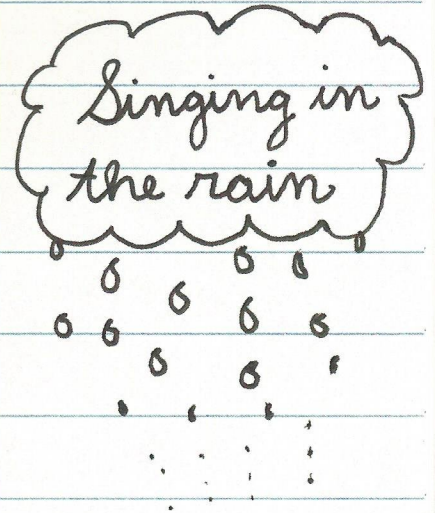 Singing in
the rain